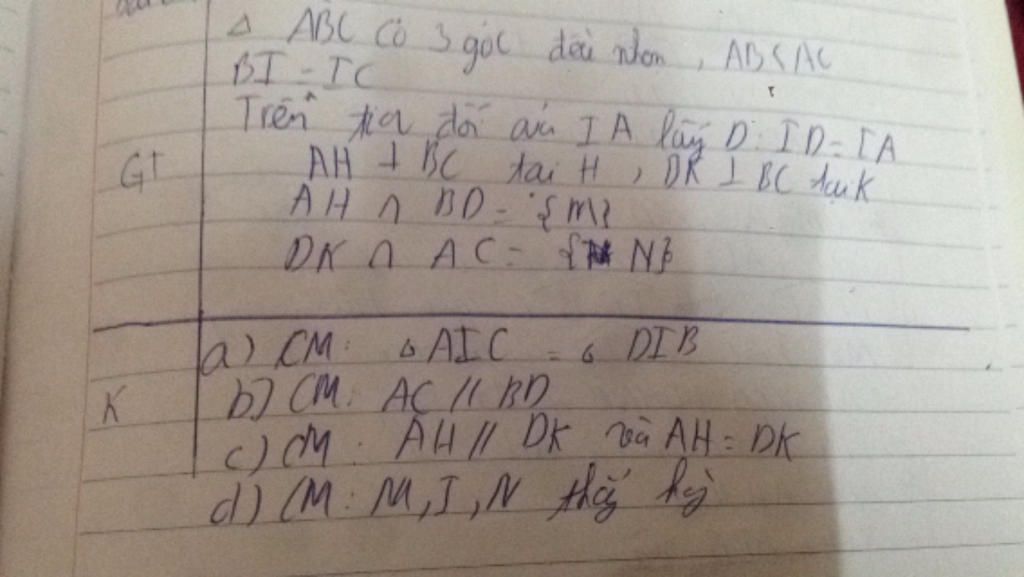 Δ ABC có 3 góc đều nhọn, AB < AC
BI = IC
Trên tia đối của IA lấy D: ID = IA
GT
AH ⊥ BC tại H, DK ⊥ BC tại K
AH ∩ BD = {M}
DK ∩ AC = {N}
a) CM: Δ AIC = Δ DIB
K
b) CM: AC // BD
c) CM: AH // DK và AH = DK
d) CM: M, I, N thẳg hàg